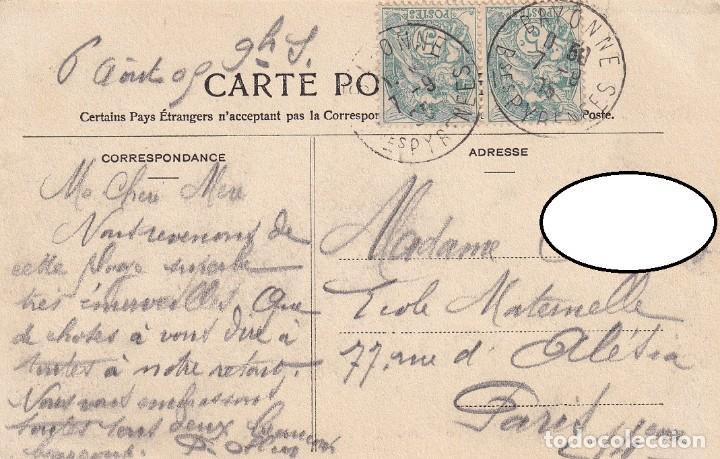 6 Août 09 9h S.
CARTE PO
Certains Pays Étrangers n'acceptent pas la Correspon
Poste.
POSTES
POSTES
BAYONNE
Bses PYRENEES
BAYONNE
Bses PYRENEES
CORRESPONDANCE
ADRESSE
Ma Chère Mère
Nous revenons de
cette plage
très émerveillés Que
de choses à vous dire à
toutes à notre retour.
Nous vous embrassons
toutes deux
Madame
Ecole Maternelle
77, rue d'Alésia
Paris
todocoleccion.net